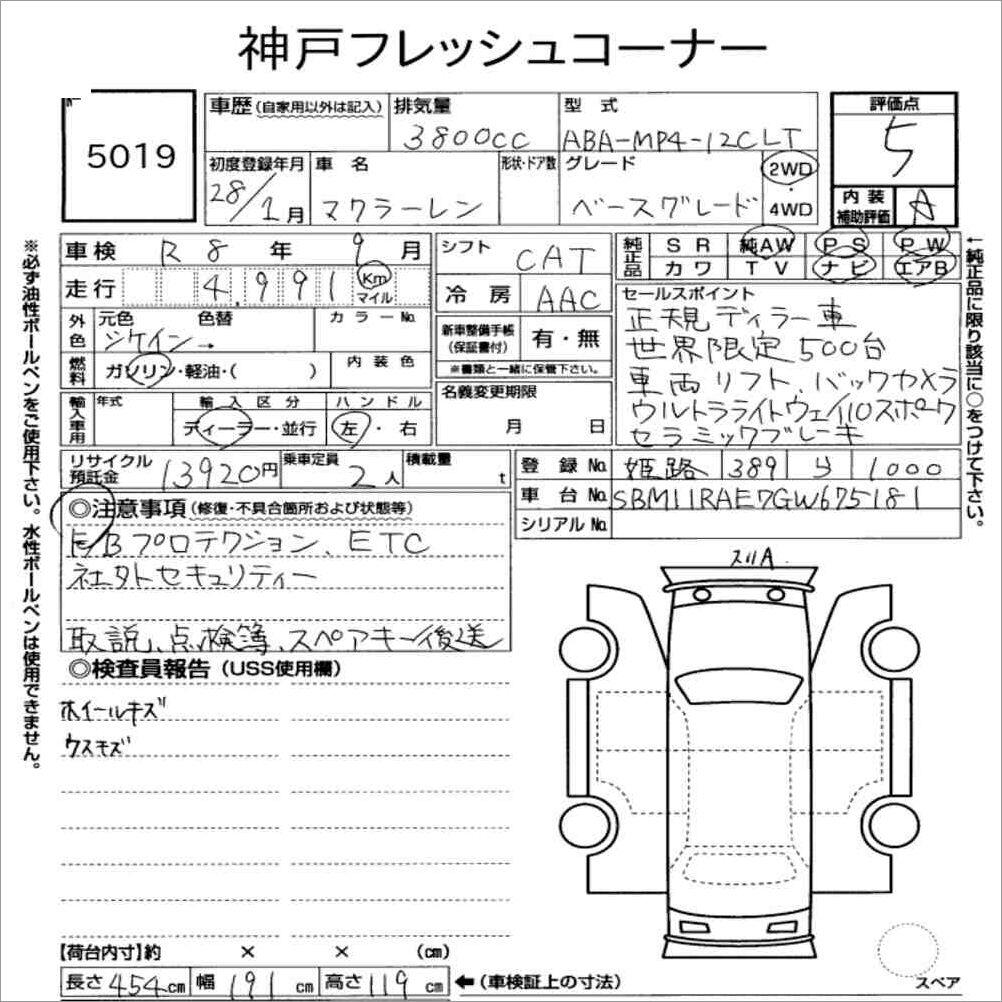 神戸フレッシュコーナー
5019
車歴（自家用以外は記入）
排気量
3800cc
型式
ABA-MP4-12C LT
評価点
5
初度登録年月
28/1月
車名
マクラーレン
形状・ドア数
グレード
ベースグレード
2WD
・
4WD
内装
補助評価
A
※必ず油性ボールペンをご使用下さい。水性ボールペンは使用できません。
車検 R 8 年 9 月
走行 4,991 Km
マイル
外色
元色 色替
シケイン→
カラーNo.
燃料
ガソリン・軽油・( )
内装色
輸入車用
年式
輸入区分
ディーラー・並行
ハンドル
左・右
シフト
CAT
冷房
AAC
新車整備手帳
（保証書付）
有・無
※書類と一緒に保管下さい。
名義変更期限
月 日
純正品
SR 純AW PS PW
カワ TV ナビ エアB
セールスポイント
正規ディラー車
世界限定500台
車両リフト、バックカメラ
ウルトラライトウェイ10スポーク
セラミックブレーキ
←純正品に限り該当に○をつけて下さい。
リサイクル
預託金
13920円
乗車定員
2人
積載量
t
登録No. 姫路 389 ら 1000
車台No. SBM11RAE7GW675181
シリアルNo.
◎注意事項（修復・不具合箇所および状態等）
F/Bプロテクション、ETC
社外セキュリティー
取説、点検簿、スペアキー後送
◎検査員報告（USS使用欄）
ホイールキズ
ウスキズ
スリA
【荷台内寸】約 × × (cm)
長さ454cm 幅191cm 高さ119cm ←（車検証上の寸法）
スペア